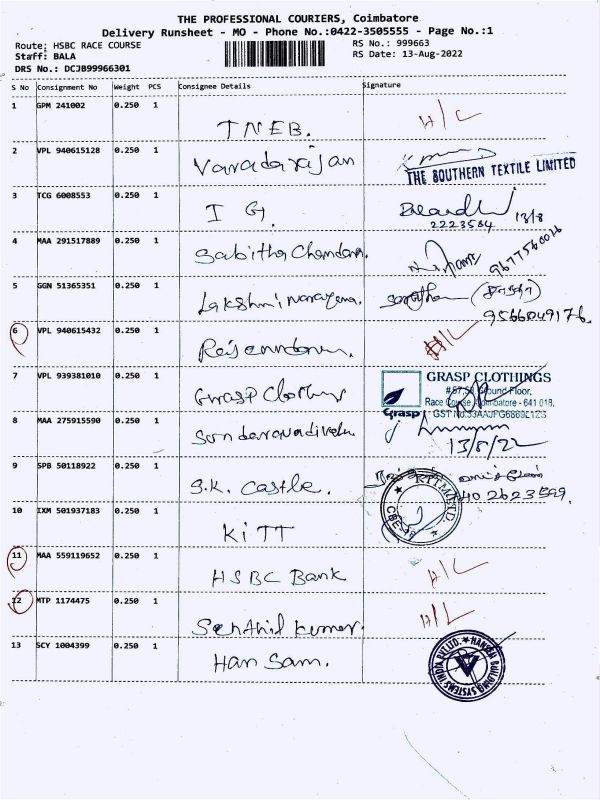 THE PROFESSIONAL COURIERS, Coimbatore
Delivery Runsheet - MO - Phone No.:0422-3505555 - Page No.:1
Route: HSBC RACE COURSE RS No.: 999663
Staff: BALA RS Date: 13-Aug-2022
DRS No.: DCJB99966301
S No Consignment No Weight PCS Consignee Details Signature
1 GPM 241002 0.250 1
TNEB. H/C
2 VPL 940615128 0.250 1
Varadarajan THE SOUTHERN TEXTILE LIMITED
3 TCG 6008553 0.250 1
I G. 13/8
2223564
4 MAA 291517889 0.250 1
Sabitha Chandana. 9677560026
5 GGN 51365351 0.250 1
Lakshmi Narayana.
9566049176
6 VPL 940615432 0.250 1
H/L
7 VPL 939381010 0.250 1 GRASP CLOTHINGS
Grasp Clothings Ground Floor,
Race Course, Coimbatore - 641 018.
Grasp GST No.
8 MAA 275915590 0.250 1
Sundaravadivelu 13/8/22
9 SPB 50118922 0.250 1
S.K. Castle.
10 IXM 501937183 0.250 1
KITT
11 MAA 559119652 0.250 1
HSBC Bank H/L
12 MTP 1174475 0.250 1
Senthil Kumar. H/L
13 SCY 1004399 0.250 1
Han Sam. BUILDING SYSTEMS INDIA PVT LTD.